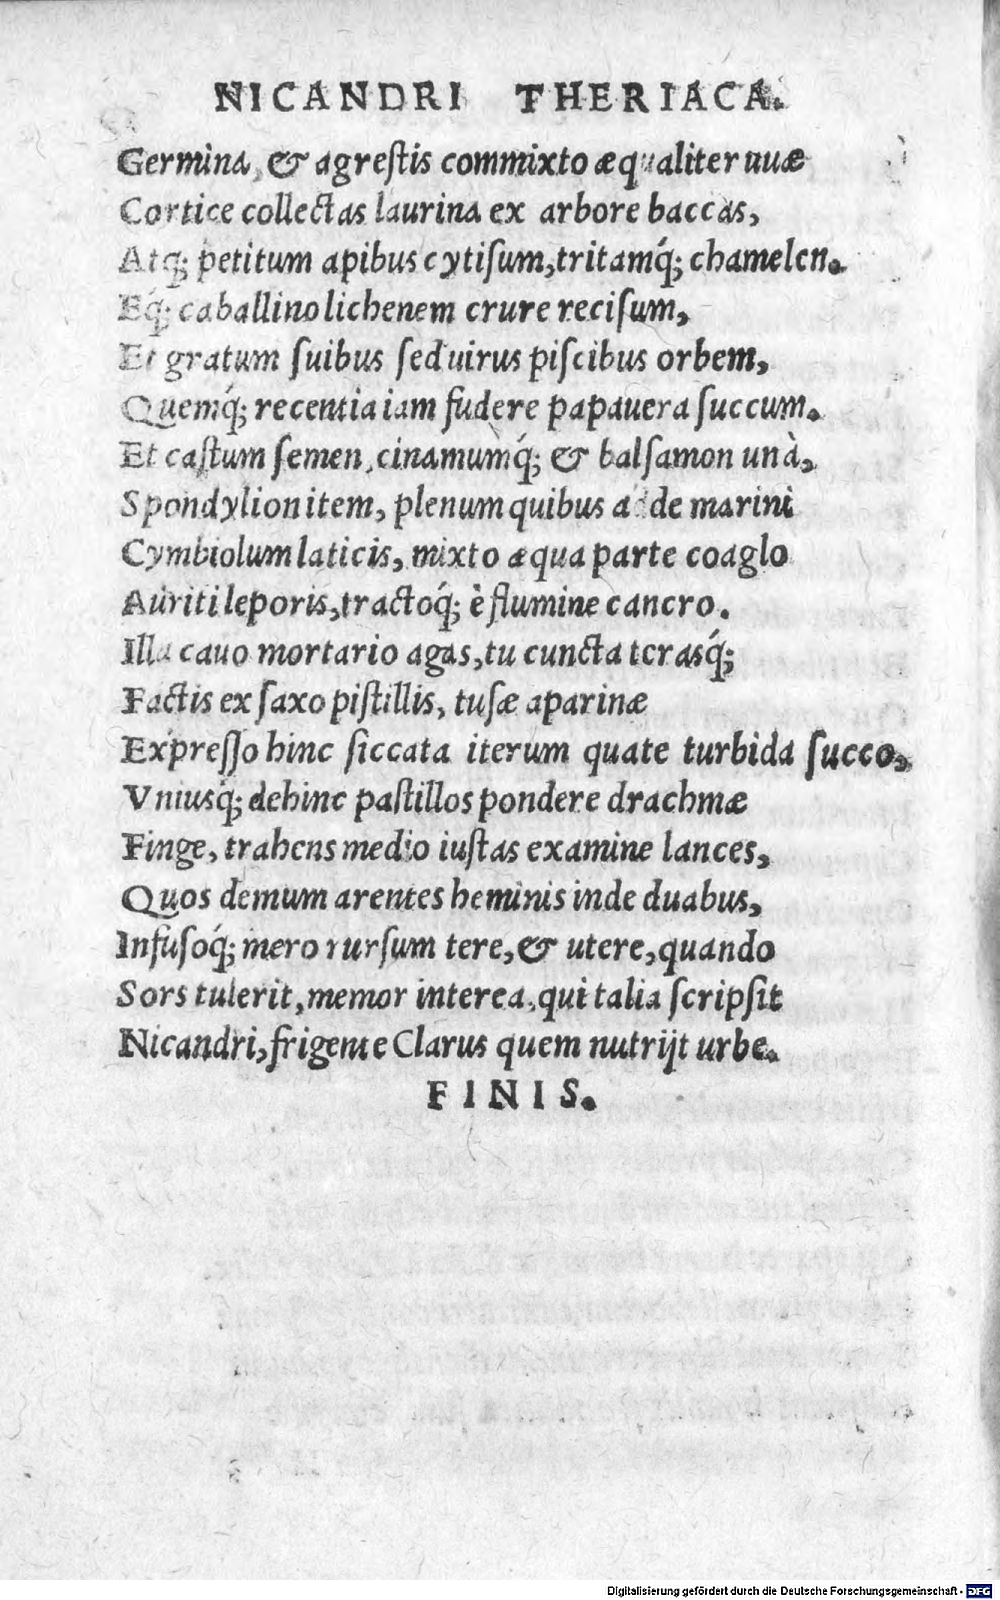 NICANDRI THERIACA.
Germina, & agreſtis commixto æqualiter uuæ
Cortice collectas laurina ex arbore baccas,
Atq; petitum apibus cytiſum, tritamq́; chamelen.
Eq́; caballino lichenem crure reciſum,
Et gratum ſuibus ſed uirus piſcibus orbem,
Quemq́; recentia iam fudere papauera ſuccum.
Et caſtum ſemen, cinamumq́; & balſamon unà,
Spondylion item, plenum quibus adde marini
Cymbiolum laticis, mixto æqua parte coaglo
Auriti leporis, tractoq́; è flumine cancro.
Illa cauo mortario agas, tu cuncta terasq́;
Factis ex ſaxo piſtillis, tuſæ aparinæ
Expreſſo hinc ſiccata iterum quate turbida ſucco,
Vniusq́; dehinc paſtillos pondere drachmæ
Finge, trahens medio iuſtas examine lances,
Quos demum arentes heminis inde duabus,
Infuſoq́; mero rurſum tere, & utere, quando
Sors tulerit, memor interea, qui talia ſcripſit
Nicandri, frigente Clarus quem nutrijt urbe.
FINIS.
Digitalisierung gefördert durch die Deutsche Forschungsgemeinschaft - DFG